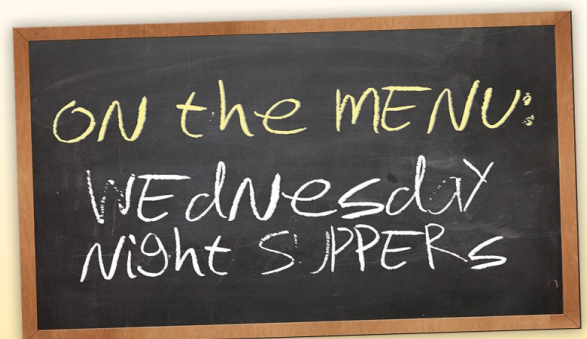 ON the MENU:
WEdNesdaY
Night SUPPERs